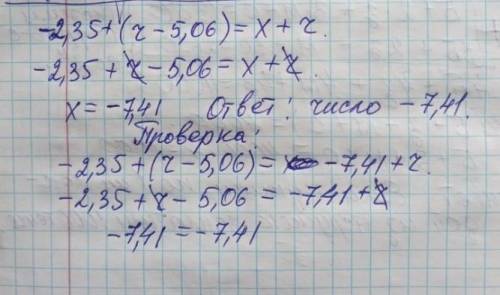 -2,35+(r-5,06)=x+r.
-2,35+r-5,06=x+r.
x=-7,41 Ответ: число -7,41.
Проверка:
-2,35+(r-5,06)= -7,41+r.
-2,35+r-5,06=-7,41+r
-7,41=-7,41